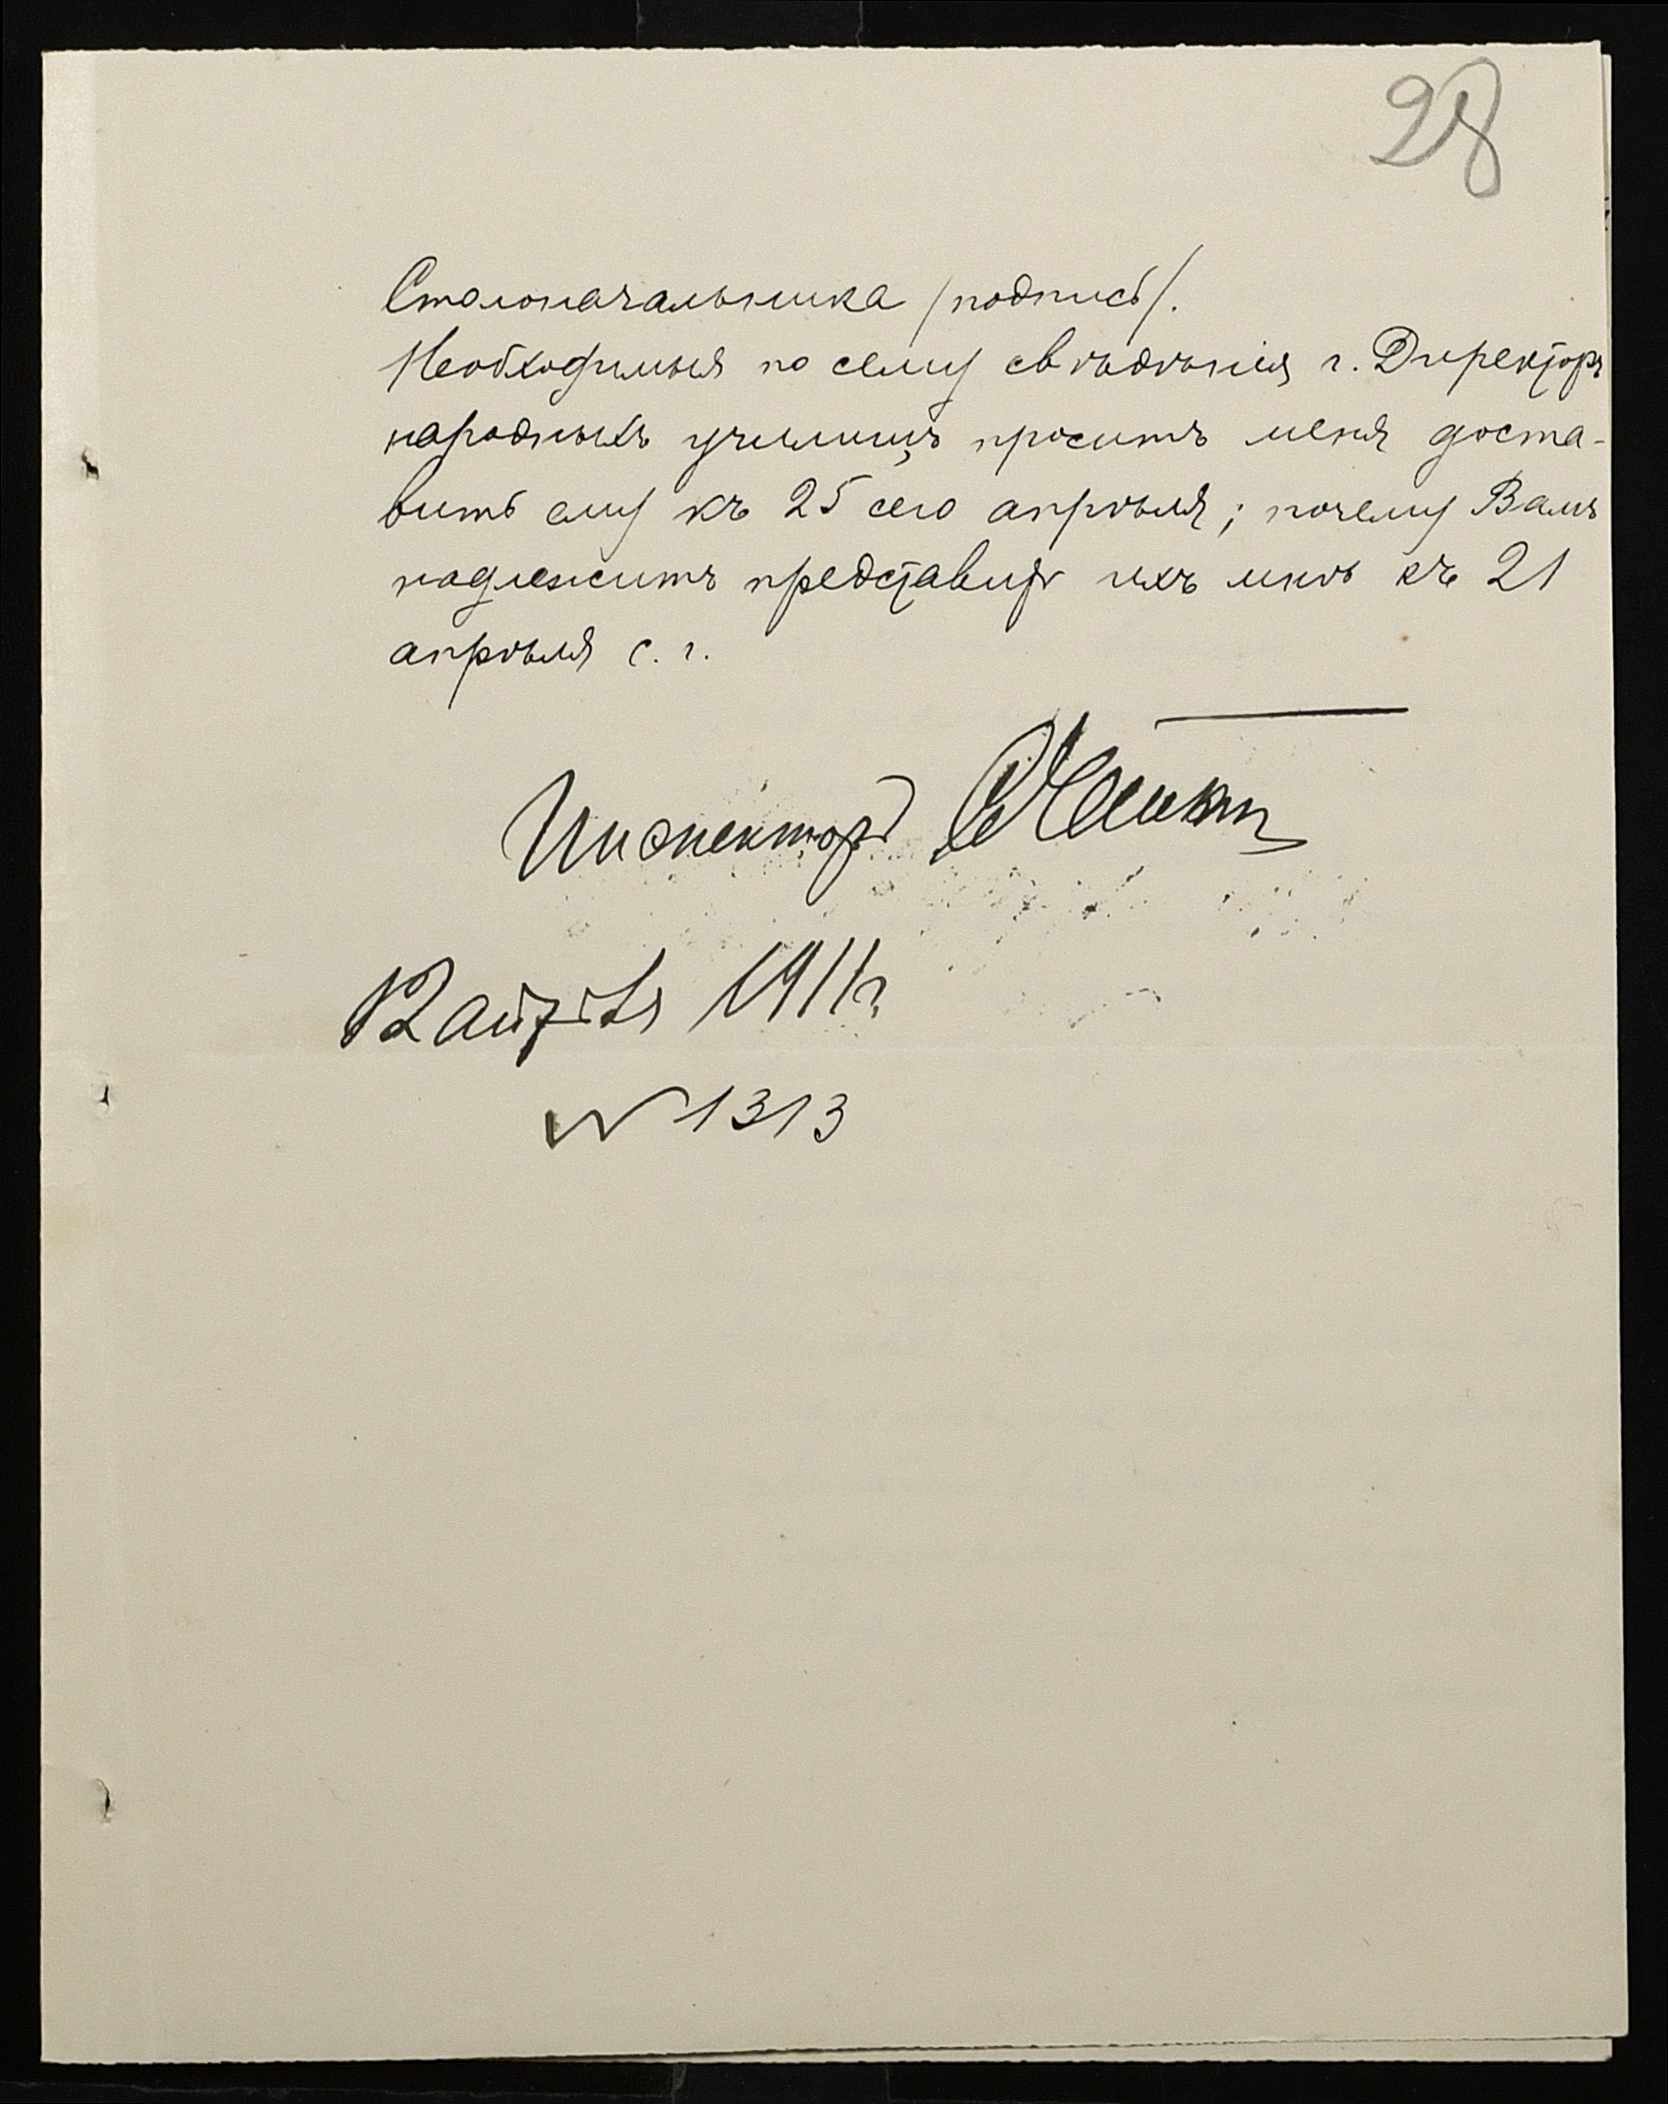 28
Столоначальника /подпись/.
Необходимыя по сему свѣдѣнія г. Директоръ
народныхъ училищъ проситъ меня доста-
вить ему къ 25 сего апрѣля; почему Вамъ
надлежитъ представить ихъ мнѣ къ 21
апрѣля с. г.
Инспекторъ
12 апрѣля 1911 г.
№ 1313